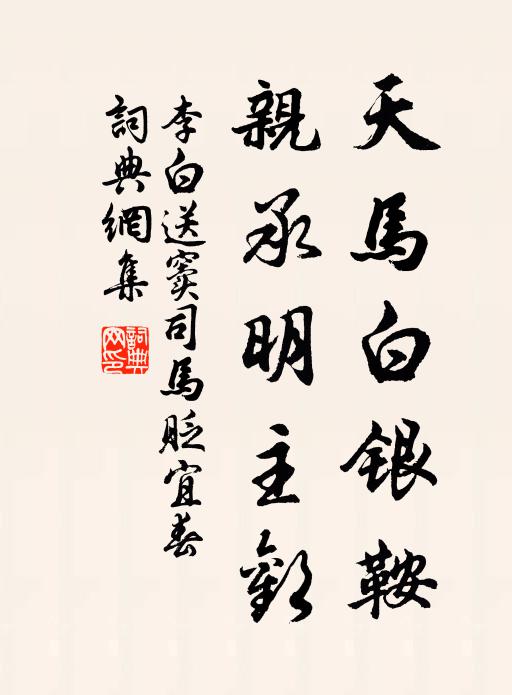 天馬白銀鞍
親承明主歡
李白送竇司馬貶宜春
詞典網集
詞典網印